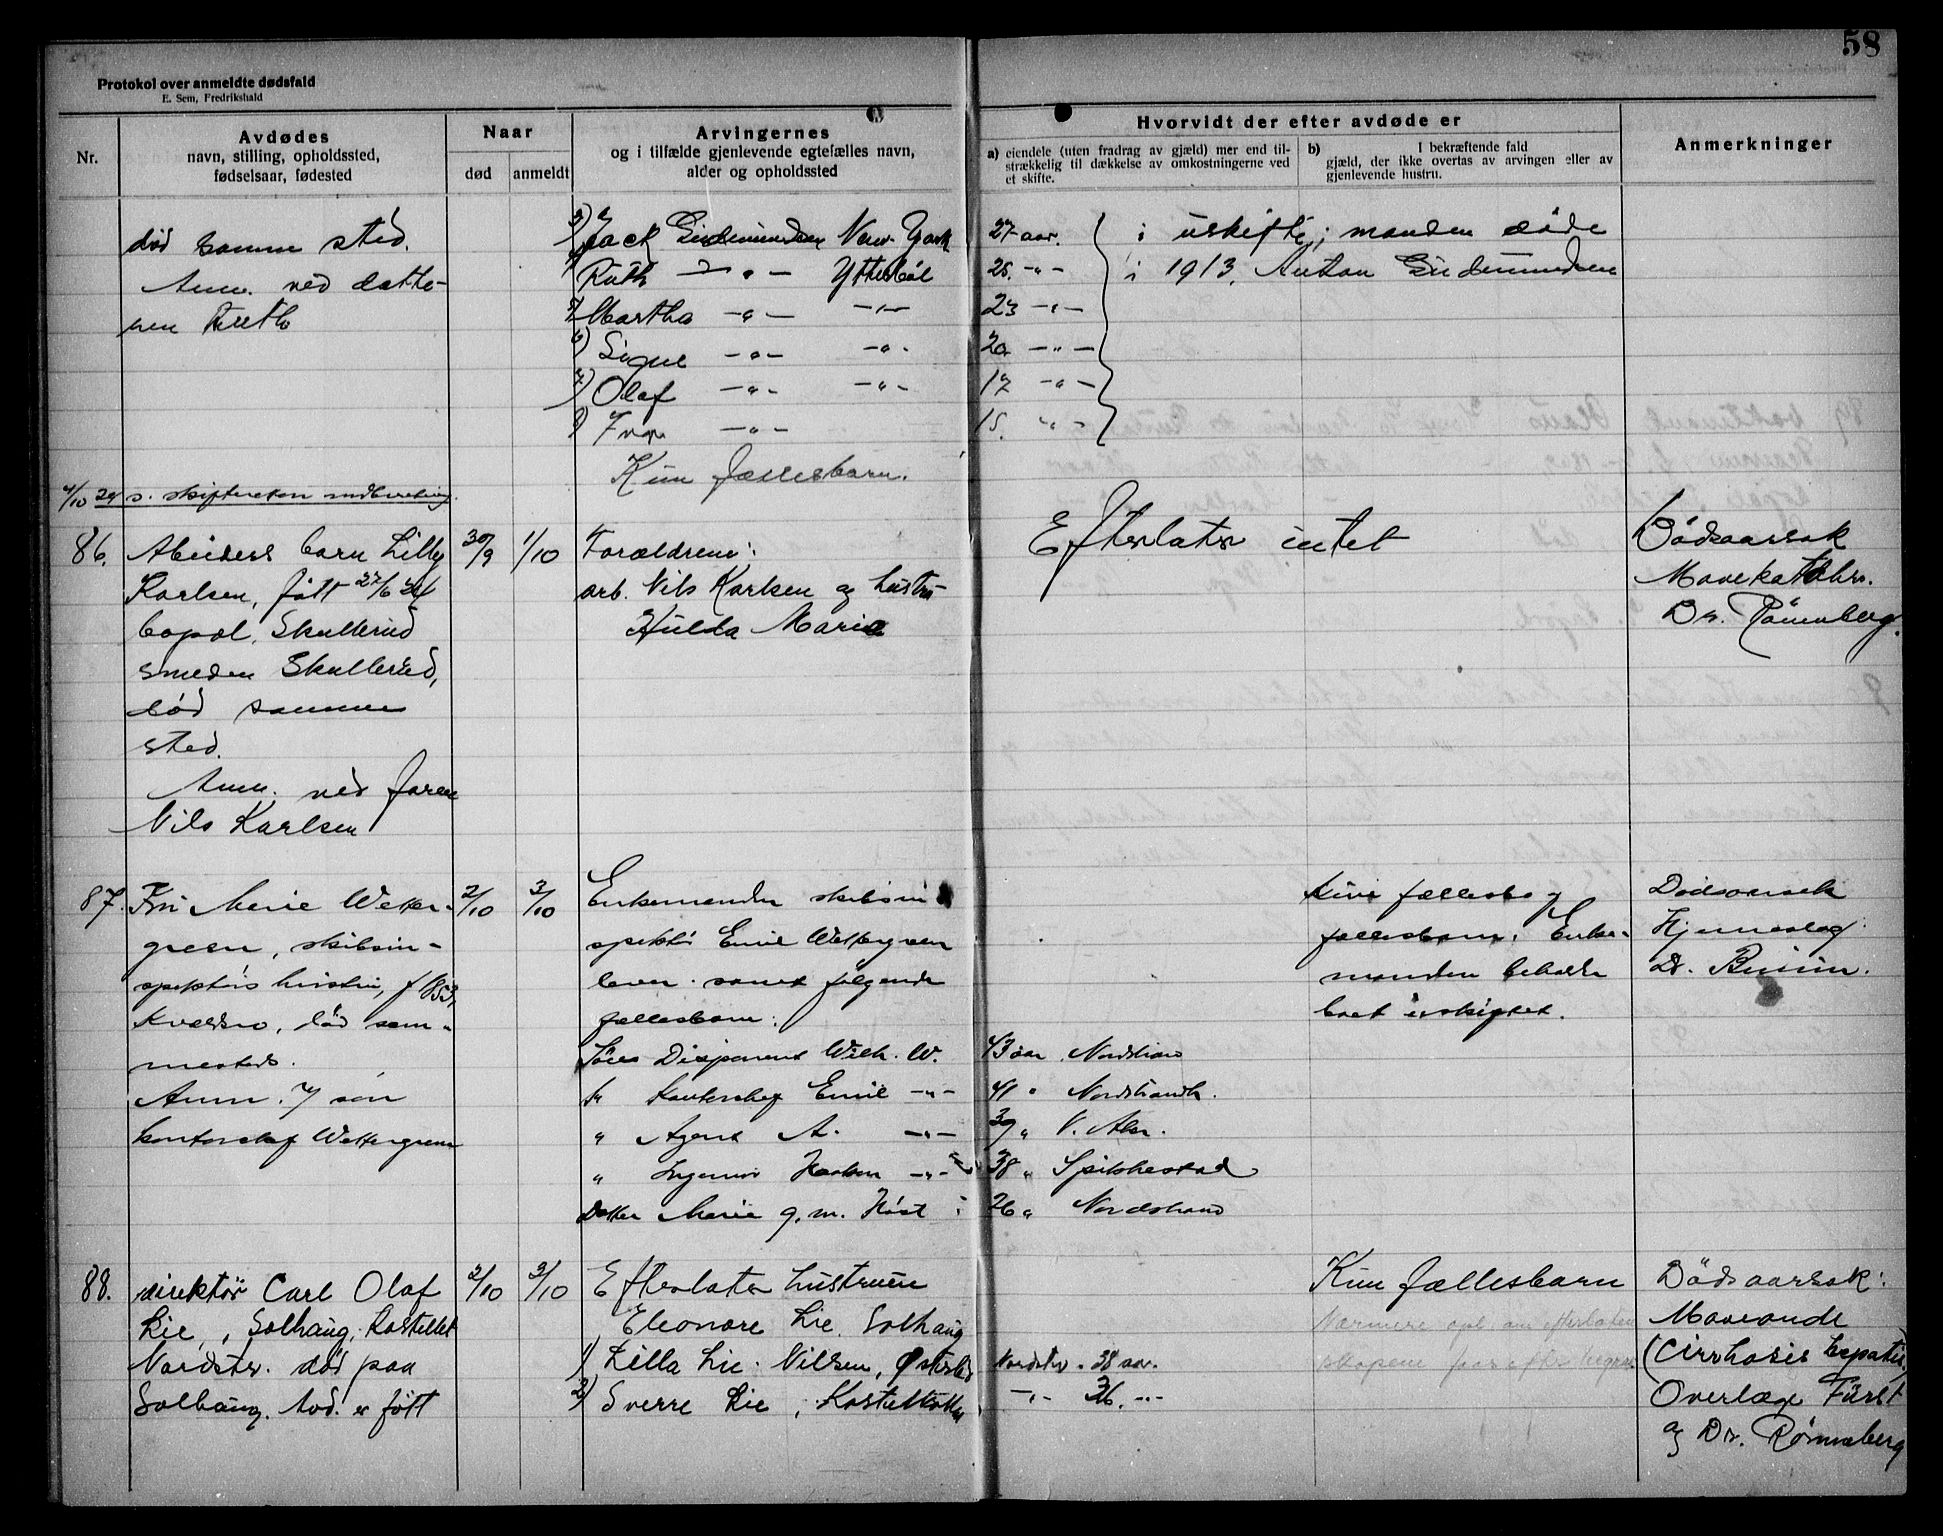 58
Protokol over anmeldte dødsfald
E. Sem, Fredrikshald
Nr.
Avdødes
navn, stilling, opholdssted,
fødselsaar, fødested
Naar
død
anmeldt
Arvingernes
og i tilfælde gjenlevende egtefælles navn,
alder og opholdssted
Hvorvidt der efter avdøde er
a) eiendele (uten fradrag av gjæld) mer end til-
strækkelig til dækkelse av omkostningerne ved
et skifte.
b) I bekræftende fald
gjæld, der ikke overtas av arvingen eller av
gjenlevende hustru.
Anmerkninger
død samme sted.
Anm. ved datte-
ren Ruth
Jack Gudmundsen New-York 27 aar.
Ruth -"- Ytterböl 25. -"-
Martha -"- -"- 23 -"-
6) Signe -"- -"- 20 -"-
7) Olaf -"- -"- 17 -"-
Ivar -"- 15. -"-
Kun fællesbarn.
i uskifte; manden døde
i 1913, Anton Gudmundsen
4/10 24 s. skifteretten
86.
Arbeiders barn Lilly
Karlsen, født 27/6 24
bopæl, Skullerud
smeden Skullerud,
död samme
sted.
Anm. ved faren
Nils Karlsen
30/9
1/10
Forældrene:
arb. Nils Karlsen og hustru
Hulda Marie
Efterlater intet
Dödsaarsak
Mavekatahr.
Dr. Rönneberg.
87.
Fru Marie Wetter-
green, skibsin-
spektörs hustru, f 1853,
død sam-
mesteds.
Anm. v/ sön
kontorchef Wettergreen
2/10
3/10
Enkemanden skibsin
spektör Emil Wettergreen
lever samt følgende
fællesbarn:
Sön Disponent Wilh. W. 43 aar Nordstrand
" Kontorchef Emil -"- 41 " Nordstrandh.
" Agent A. -"- 39 " V. Aker.
" Ingeniör Haakon -"- 38 " Spikkestad
Datter Marie g. m. Höst 26 " Nordstrand
fællesbo og
fællesbarn. Enke-
manden beholder
boet uskiftet.
Dødsaarsak
Hjerneslag
Dr.
88.
direktör Carl Olaf
Lie, Solhaug, Kastellet
Nordstr. død paa
Solhaug. Avd. er født
2/10
3/10
Efterlater hustruen
Eleonore Lie. Solhaug
1) Lilla Lie-Nilsen, Nordstr. 38 aar.
2) Sverre Lie, -"- 36. -"-
Kun fællesbarn
Nærmere opl. om efterlaten
skapene
Dödsaarsak:
Maveonde
(Cirrhosis hepatis)
Overlæge Fürst
og Dr. Rönneberg